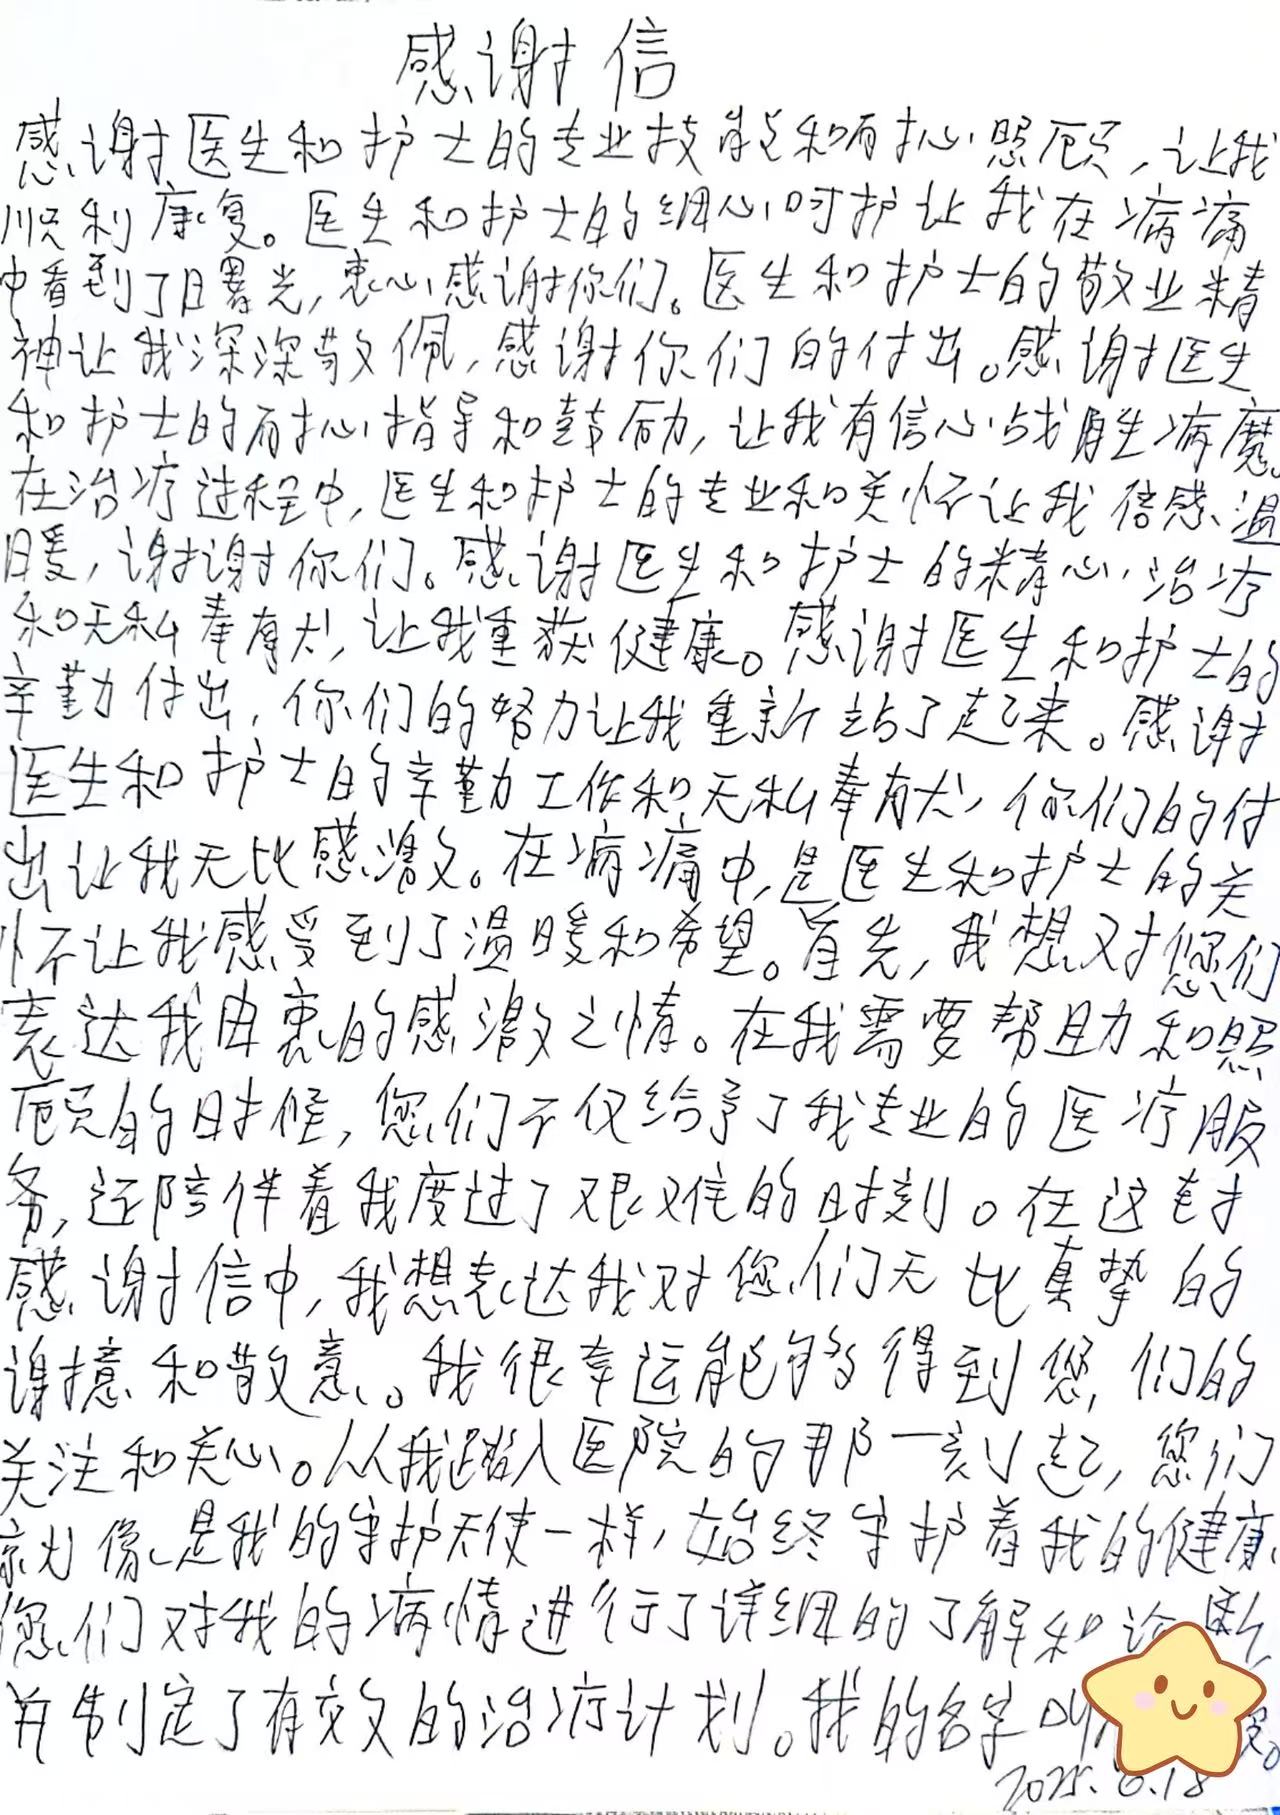 感谢信
感谢医生和护士的专业技能和耐心照顾，让我
顺利康复。医生和护士的细心呵护让我在病痛
中看到了曙光，衷心感谢你们。医生和护士的敬业精
神让我深深敬佩，感谢你们的付出。感谢医生
和护士的耐心指导和鼓励，让我有信心战胜病魔。
在治疗过程中，医生和护士的专业和关怀让我倍感温
暖，谢谢你们。感谢医生和护士的精心治疗
和无私奉献，让我重获健康。感谢医生和护士的
辛勤付出，你们的努力让我重新站了起来。感谢
医生和护士的辛勤工作和无私奉献，你们的付
出让我无比感激。在病痛中，是医生和护士的关
怀让我感受到了温暖和希望。首先，我想对您们
表达我由衷的感激之情。在我需要帮助和照
顾的时候，您们不仅给予了我专业的医疗服
务，还陪伴着我度过了艰难的时刻。在这封
感谢信中，我想表达我对您们无比真挚的
谢意和敬意。我很幸运能够得到您们的
关注和关心。从我踏入医院的那一刻起，您们
就像是我的守护天使一样，始终守护着我的健康。
您们对我的病情进行了详细的了解和诊断
并制定了有效的治疗计划。我的名字叫
2025.6.18